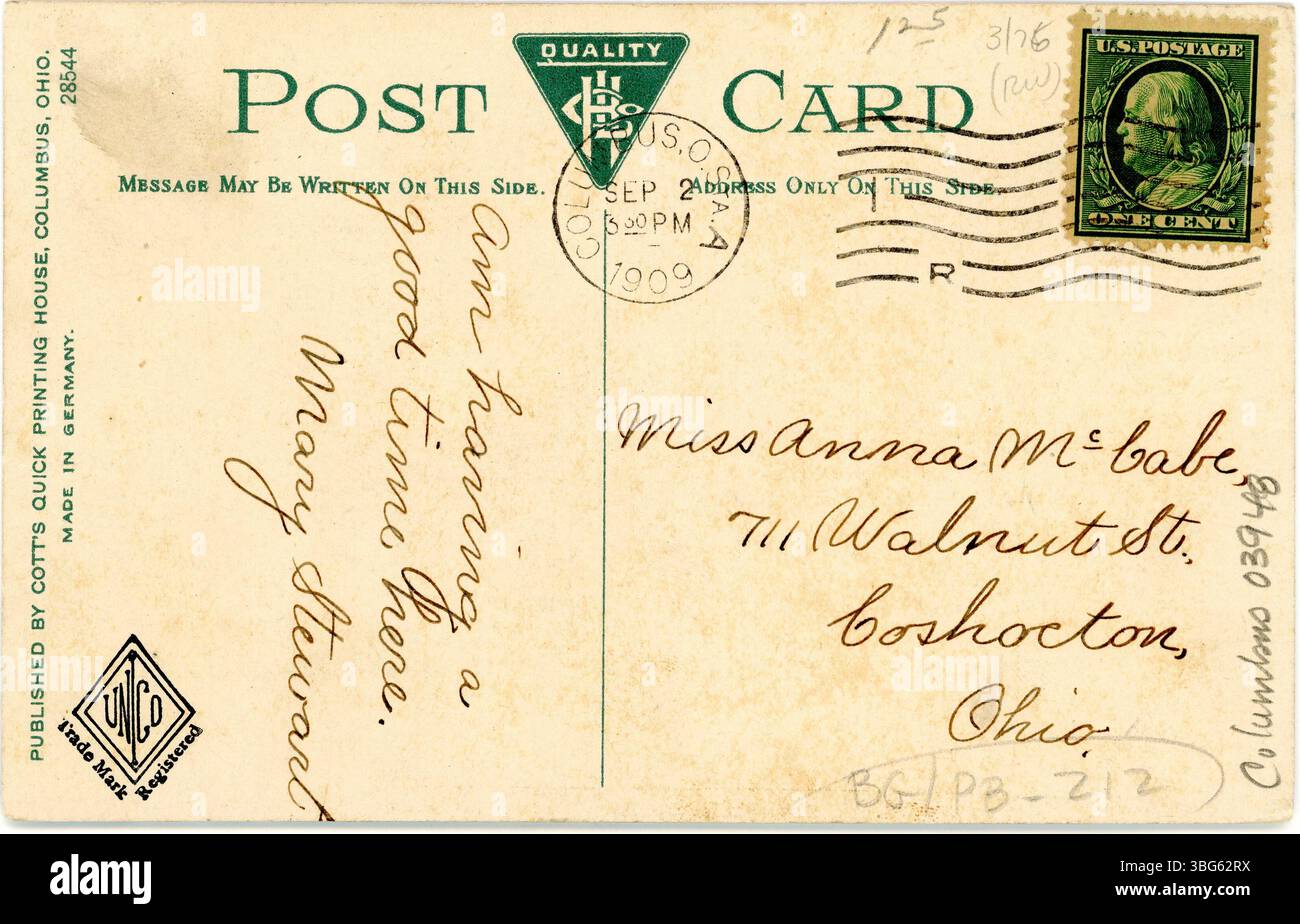 QUALITY
POST CARD
MESSAGE MAY BE WRITTEN ON THIS SIDE.
ADDRESS ONLY ON THIS SIDE
PUBLISHED BY COTT'S QUICK PRINTING HOUSE, COLUMBUS, OHIO.
MADE IN GERMANY.
28544
UNICO
Trade Mark Registered
SEP 2
330 PM
1909
1
R
U.S. POSTAGE
ONE CENT
125
3/76
(RW)
Am having a
good time here.
Mary Stewart
Miss Anna McCabe,
711 Walnut St.,
Coshocton,
Ohio.
BG/PB-212
Columbus 03948
alamy
Image ID: 3BG62RX
www.alamy.com